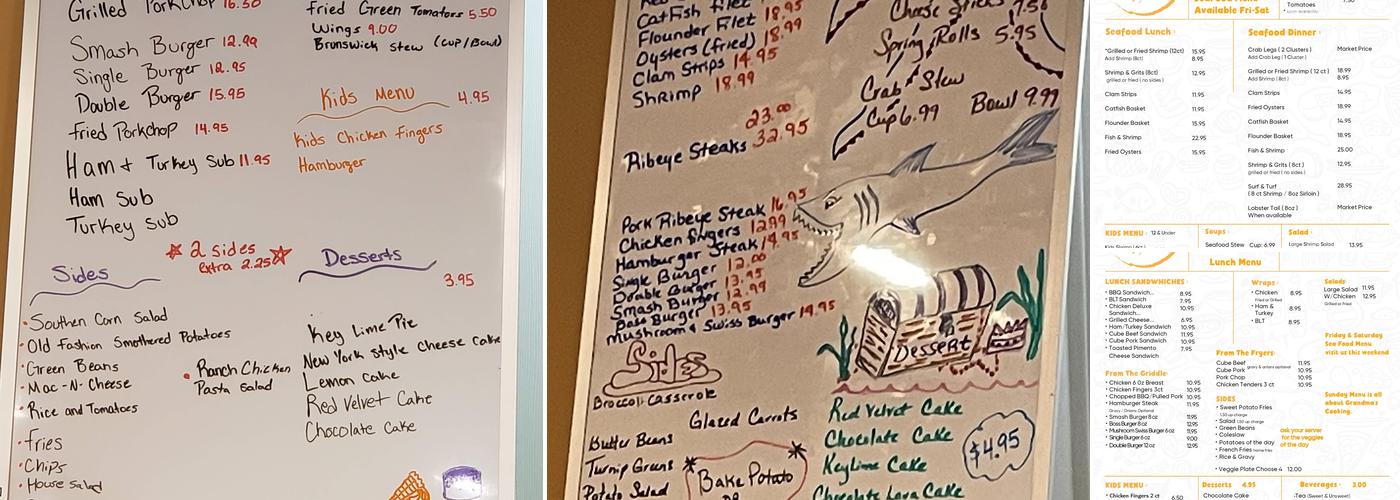 Grilled Porkchop 16.50
Smash Burger 12.99
Single Burger 12.95
Double Burger 15.95
fried Porkchop 14.95
Ham + Turkey Sub 11.95
Ham Sub
Turkey Sub
fried Green Tomatoes 5.50
Wings 9.00
Brunswick Stew (Cup/Bowl)
Kids Menu 4.95
Kids Chicken fingers
Hamburger
2 sides
Extra 2.25
Sides
Southern Corn Salad
Old Fashion Smothered Potatoes
Green Beans
Mac-N-Cheese
Rice and Tomatoes
fries
Chips
House Salad
Ranch Chicken
Pasta Salad
Desserts
3.95
Key Lime Pie
New York Style Cheese Cake
Lemon Cake
Red Velvet Cake
Chocolate Cake
Catfish filet 18.95
Flounder Filet 18.99
Oysters (fried) 18.99
Clam Strips 14.95
Shrimp 18.99
Ribeye Steaks 23.00
32.95
Pork Ribeye Steak 16.95
Chicken fingers 12.99
Hamburger Steak 14.95
Single Burger 12.00
Double Burger 13.95
Smash Burger 12.99
Boss Burger 13.95
Mushroom & Swiss Burger 14.95
Cheese Sticks 7.50
Spring Rolls 5.95
Crab Stew
Cup 6.99 Bowl 9.99
Dessert
Sides
Broccoli Casserole
Glazed Carrots
Butter Beans
Turnip Greens
Potato Salad
Bake Potato
Red Velvet Cake
Chocolate Cake
Keylime Cake
Chocolate Lava Cake
$4.95
Available Fri-Sat
Tomatoes
Seafood Lunch
*Grilled or Fried Shrimp (12ct) 15.95
Add Shrimp (8ct) 8.95
Shrimp & Grits (8ct) 12.95
grilled or fried ( no sides )
Clam Strips 11.95
Catfish Basket 11.95
Flounder Basket 15.95
Fish & Shrimp 22.95
Fried Oysters 15.95
Seafood Dinner
Crab Legs ( 2 Clusters ) Market Price
Add Crab Leg ( 1 Cluster )
Grilled or Fried Shrimp ( 12 ct ) 18.99
Add Shrimp ( 8ct ) 8.95
Clam Strips 14.95
Fried Oysters 18.99
Catfish Basket 14.95
Flounder Basket 18.95
Fish & Shrimp 25.00
Shrimp & Grits ( 8ct ) 12.95
grilled or fried ( no sides )
Surf & Turf 28.95
( 8 ct Shrimp / 8oz Sirloin )
Lobster Tail ( 8oz ) Market Price
When available
KIDS MENU 12 & Under
Soups
Seafood Stew Cup: 6.99
Salad
Large Shrimp Salad 13.95
Lunch Menu
LUNCH SANDWHICHES
BBQ Sandwich... 8.95
BLT Sandwich 7.95
Chicken Deluxe 10.95
Sandwich...
Grilled Cheese... 6.95
Ham/Turkey Sandwich 10.95
Cube Beef Sandwich 11.95
Cube Pork Sandwich 10.95
Toasted Pimento 7.95
Cheese Sandwich
Wraps
Chicken 8.95
Fried or Grilled
Ham & 8.95
Turkey
BLT 8.95
Salads
Large Salad 11.95
W/Chicken 12.95
Grilled or Fried
Friday & Saturday
See Food Menu
visit us this weekend
From The Fryers
Cube Beef 11.95
Cube Pork gravy & onions optional 10.95
Pork Chop 10.95
Chicken Tenders 3 ct 10.95
From The Griddle
Chicken 6 0z Breast 10.95
Chicken Fingers 3ct 10.95
Chopped BBQ/Pulled Pork 10.95
Hamburger Steak 11.95
Gravy / Onions Optional
Smash Burger 8oz 11.95
Boss Burger 8oz 12.95
Mushroom Swiss Burger 6 oz 11.95
Single Burger 6 oz 9.00
Double Burger 12 oz 10.95
SIDES
Sweet Potato Fries
1.50 up charge
Salad 1.50 up charge
Green Beans
Coleslaw
Potatoes of the day
French Fries home fries
Rice & Gravy
Veggie Plate Choose 4 12.00
Sunday Menu is all
about Grandma's
Cooking.
ask your server
for the veggies
of the day
KIDS MENU
Chicken Fingers 2 ct 6.50
Desserts 4.95
Chocolate Cake
Beverages 3.00
Tea (Sweet & Unsweet)